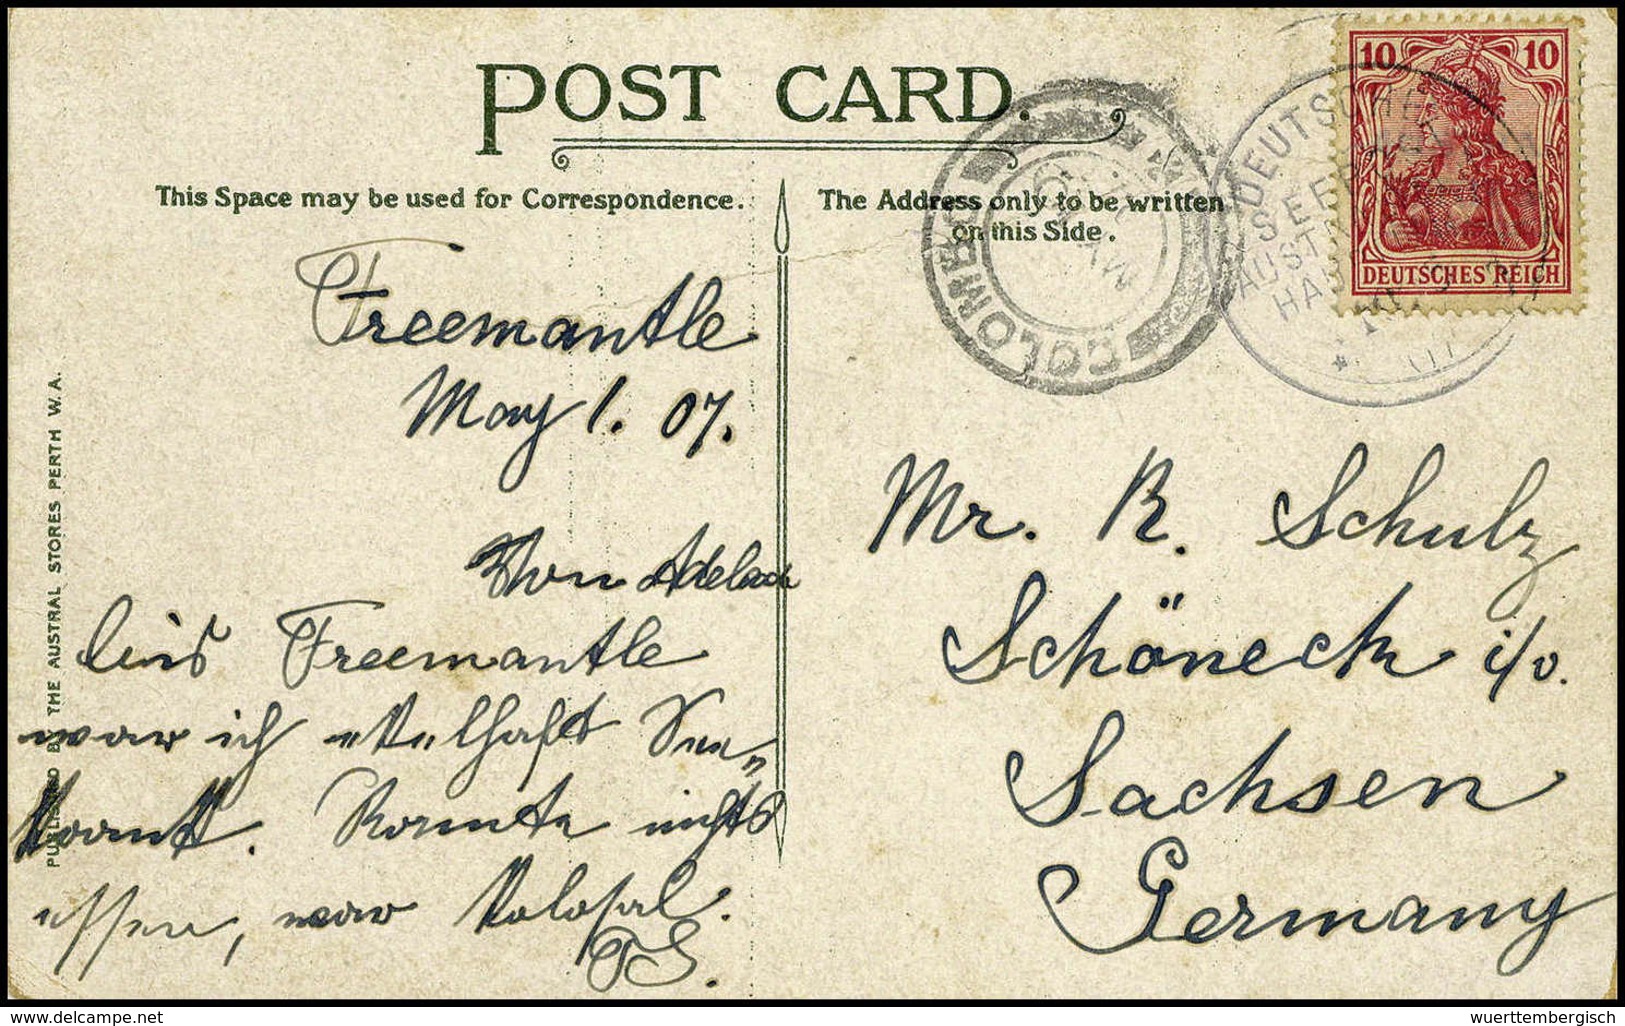 POST CARD.
This Space may be used for Correspondence.
The Address only to be written
on this Side.
10 10
DEUTSCHES REICH
DEUTSCHE
SEEPOST
COLOMBO
Freemantle
May 1. 07.
Von Adelaide
bis Freemantle
war ich ekelhaft See-
krank. Konnte nichts
essen, war kolossal.
PS.
Mr. R. Schulz
Schöneck i/v.
Sachsen
Germany
PUBLISHED BY THE AUSTRAL STORES PERTH W.A.
www.delcampe.net
wuerttembergisch